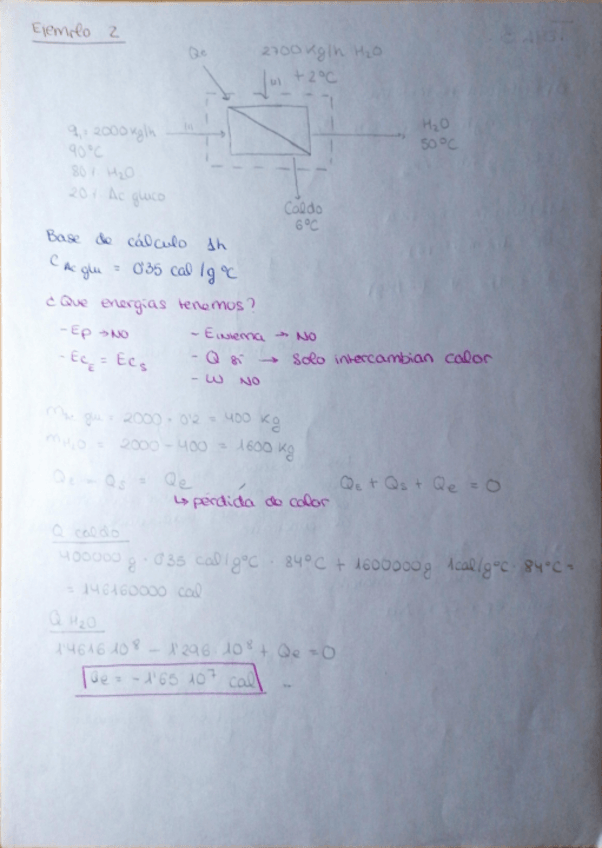 Ejemplo 2
Qe
2700 Kg/h H2O
+ 2°C
q1 = 2000 kg/h
90°C
80% H2O
20% Ac gluco
H2O
50°C
Caldo
6°C
Base de cálculo 1h
C Ac glu = 0'35 cal/g°C
¿Que energías tenemos?
- Ep → NO
- Einterna → NO
- EcE = EcS
- Q si → Solo intercambian calor
- W NO
mac glu = 2000 · 0'2 = 400 Kg
mH2O = 2000 - 400 = 1600 kg
QE - QS = Qe
QE + QS + Qe = 0
↳ pérdida de calor
Q caldo
400000 g · 0'35 cal/g°C · 84°C + 1600000g 1cal/g°C · 84°C =
= 146160000 cal
Q H2O
1'4616 10^8 - 1'296 · 10^8 + Qe = 0
Qe = -1'65 10^7 cal